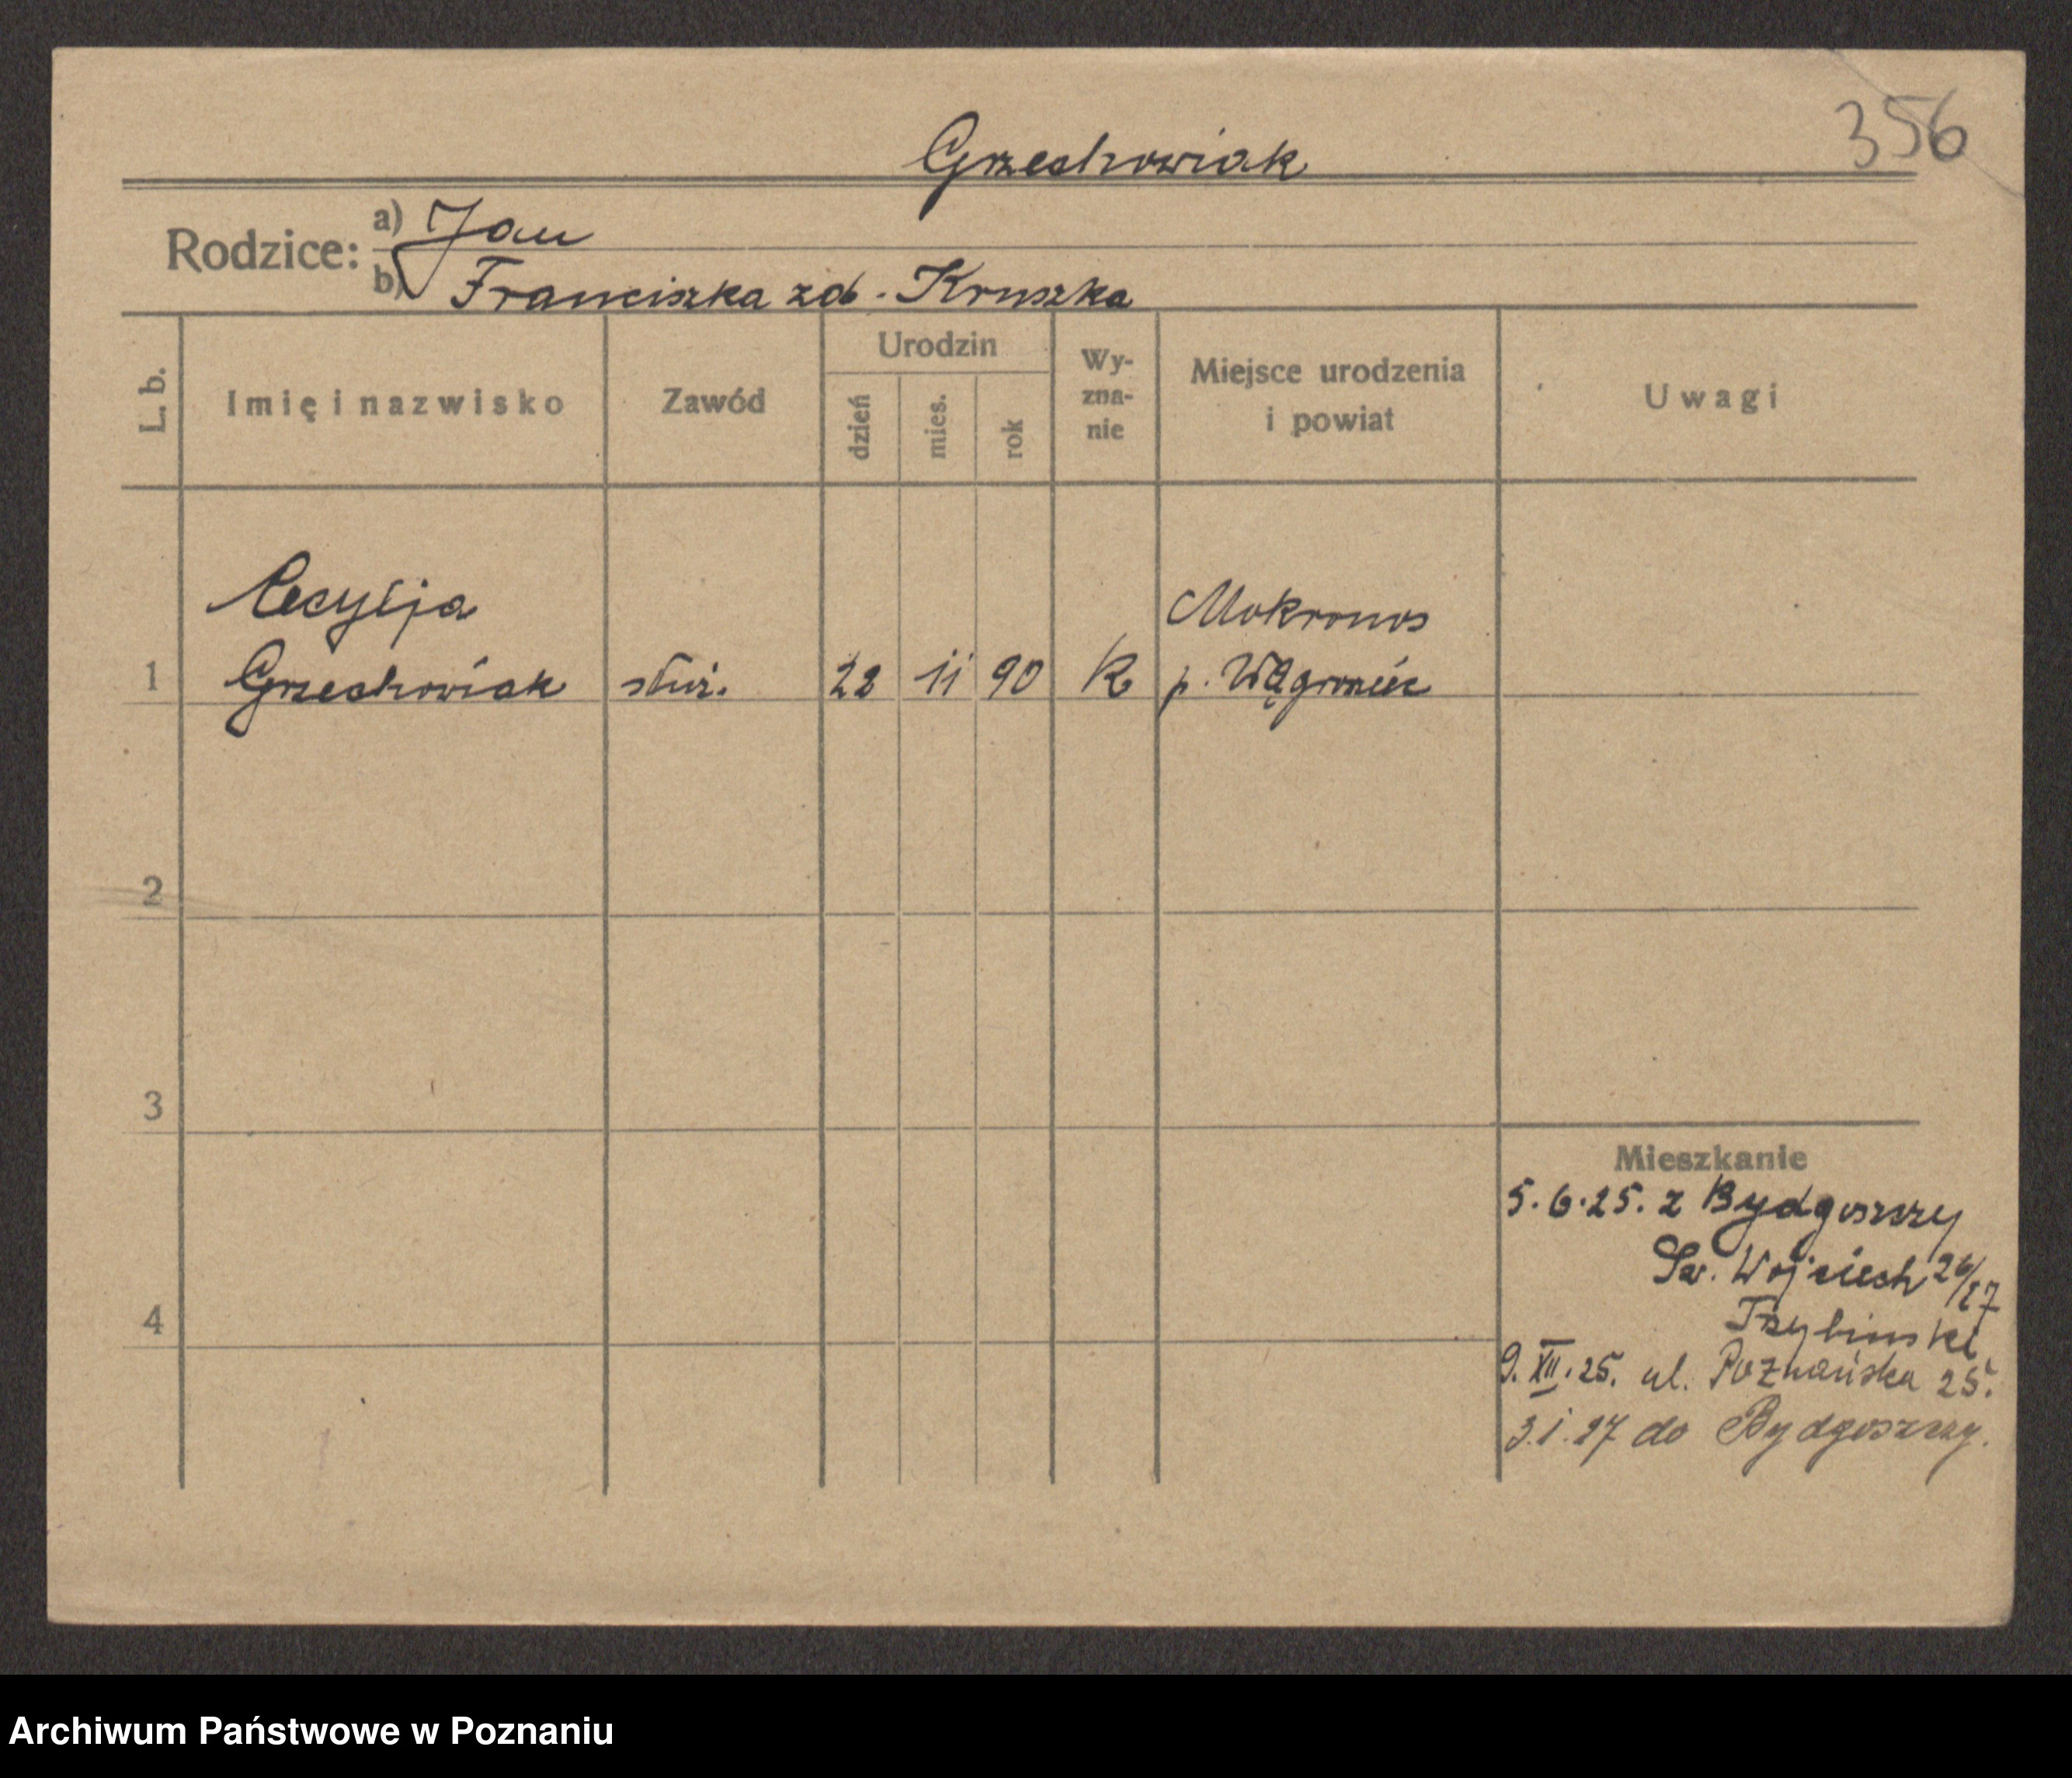 356
Grzechowiak
Rodzice: a) Jan
b) Franciszka zd. Kruszka
L. b.
Imię i nazwisko
Zawód
Urodzin
dzień
mies.
rok
Wy-
zna-
nie
Miejsce urodzenia
i powiat
Uwagi
Cecylja
Mokronos
1 Grzechowiak służ. 22 11 90 K p. Wągrowiec
2
3
4
Mieszkanie
5.6.25. z Bydgoszczy
Św. Wojciech 26/27
9.XII.25. ul. Poznańska 25.
3.1.27 do Bydgoszczy.
Archiwum Państwowe w Poznaniu